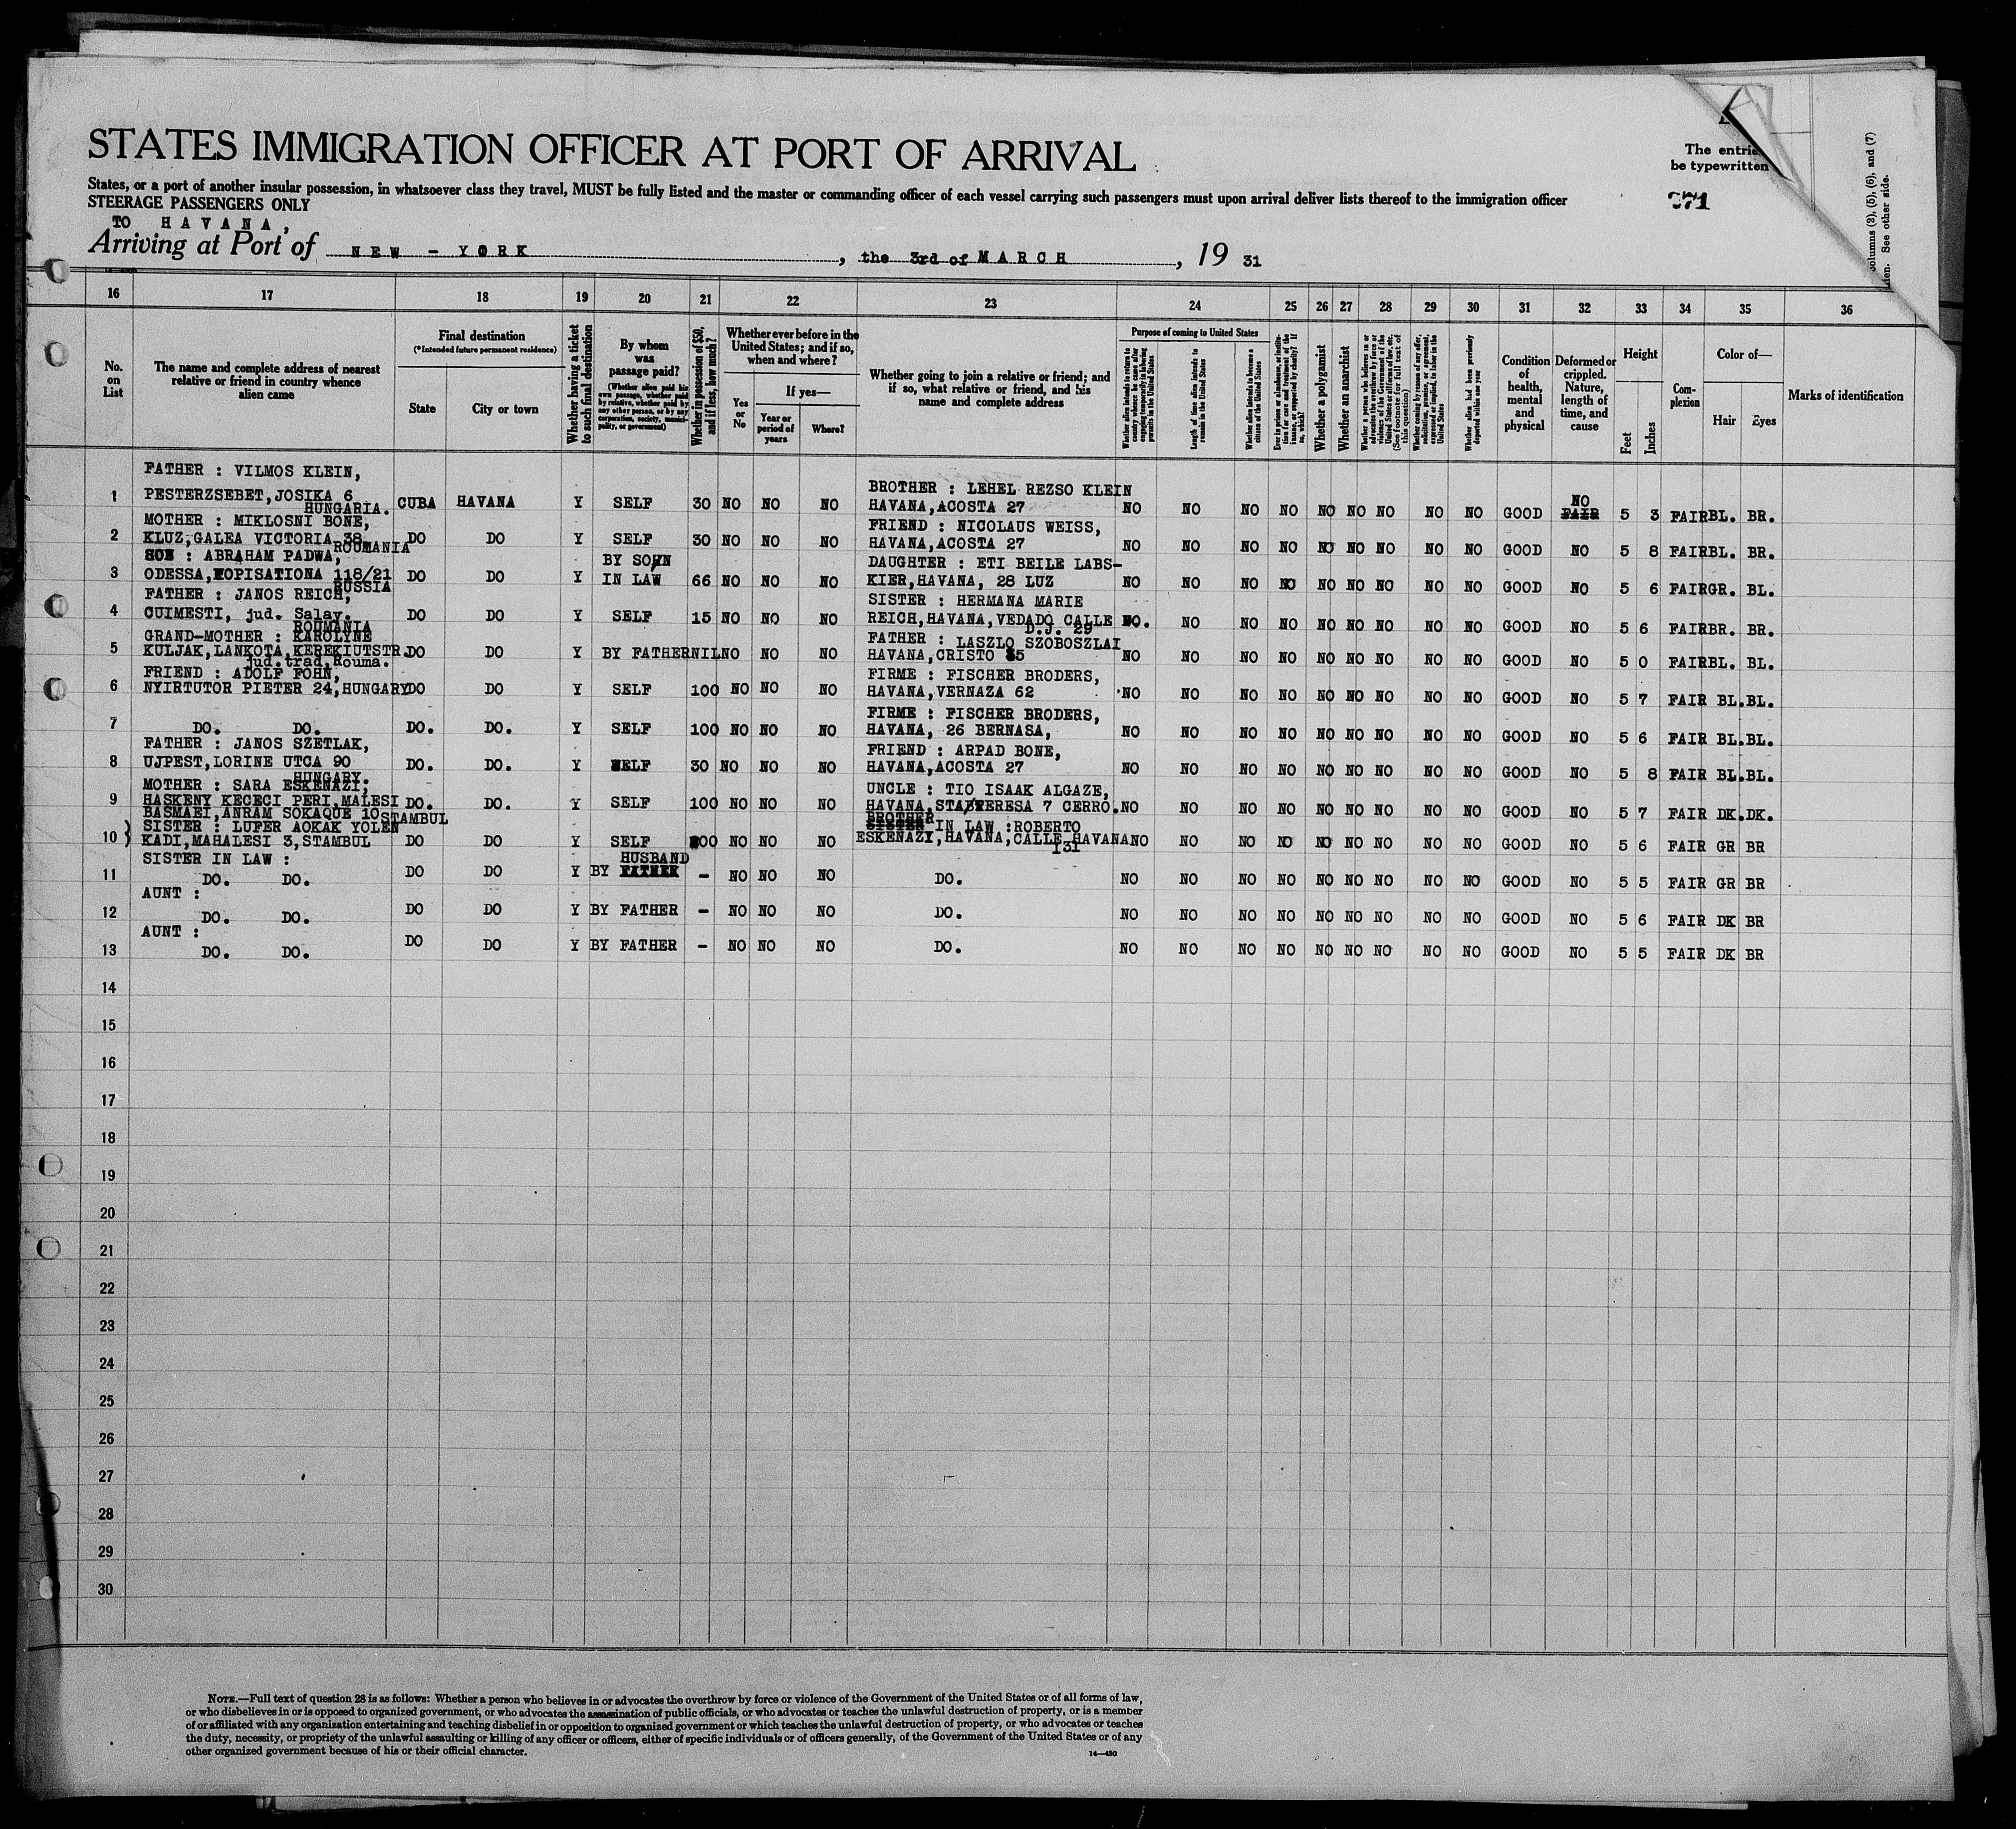 STATES IMMIGRATION OFFICER AT PORT OF ARRIVAL
The entrie
be typewritten
States, or a port of another insular possession, in whatsoever class they travel, MUST be fully listed and the master or commanding officer of each vessel carrying such passengers must upon arrival deliver lists thereof to the immigration officer
STEERAGE PASSENGERS ONLY
371
TO HAVANA,
Arriving at Port of NEW - YORK, the 3rd of MARCH, 19 31
columns (2), (5), (6), and (7)
See other side.
16 17 18 19 20 21 22 23 24 25 26 27 28 29 30 31 32 33 34 35 36
No. on List
The name and complete address of nearest relative or friend in country whence alien came
Final destination
(*Intended future permanent residence)
State
City or town
Whether having a ticket to such final destination
By whom was passage paid?
(Whether alien paid his own passage, whether paid by relative, whether paid by any other person, or by any corporation, society, municipality, or government)
Whether in possession of $50, and if less, how much?
Whether ever before in the United States; and if so, when and where?
Yes or No
If yes—
Year or period of years
Where?
Whether going to join a relative or friend; and if so, what relative or friend, and his name and complete address
Purpose of coming to United States
Whether alien intends to return to country whence he came after engaging temporarily in laboring pursuits in the United States
Length of time alien intends to remain in the United States
Whether alien intends to become a citizen of the United States
Ever in prison or almshouse, or institution for care and treatment of the insane, or supported by charity? If so, which?
Whether a polygamist
Whether an anarchist
Whether a person who believes in or advocates the overthrow by force or violence of the Government of the United States or all forms of law, etc. (See footnote for full text of this question)
Whether coming by reason of any offer, solicitation, promise, or agreement, expressed or implied, to labor in the United States
Whether alien had been previously deported within one year
Condition of health, mental and physical
Deformed or crippled. Nature, length of time, and cause
Height
Feet
Inches
Complexion
Color of—
Hair
Eyes
Marks of identification
FATHER : VILMOS KLEIN,
BROTHER : LEHEL REZSO KLEIN
1 PESTERZSEBET,JOSIKA 6 CUBA HAVANA Y SELF 30 NO NO NO HAVANA,ACOSTA 27 NO NO NO NO NO NO NO NO NO GOOD NO FAIR 5 3 FAIR BL. BR.
HUNGARIA.
MOTHER : MIKLOSNI BONE,
FRIEND : NICOLAUS WEISS,
2 KLUZ,GALEA VICTORIA 38, DO DO Y SELF 30 NO NO NO HAVANA,ACOSTA 27 NO NO NO NO NO NO NO NO NO GOOD NO 5 8 FAIR BL. BR.
ROUMANIA
SON : ABRAHAM PADWA,
BY SON
DAUGHTER : ETI BEILE LABS-
3 ODESSA, 118/21 DO DO Y IN LAW 66 NO NO NO KIER,HAVANA, 28 LUZ NO NO NO NO NO NO NO NO NO GOOD NO 5 6 FAIR GR. BL.
RUSSIA
FATHER : JANOS REICH,
SISTER : HERMANA MARIE
4 CUIMESTI, jud. Salay. DO DO Y SELF 15 NO NO NO REICH,HAVANA,VEDADO CALLE NO. NO NO NO NO NO NO NO NO GOOD NO 5 6 FAIR BR. BR.
ROUMANIA
D.J. 29
GRAND-MOTHER : KAROLYNE
FATHER : LASZLO SZOBOSZLAI
5 KULJAK,LANKOTA,KEREKIUTSTR. DO DO Y BY FATHER NIL NO NO NO HAVANA,CRISTO 35 NO NO NO NO NO NO NO NO NO GOOD NO 5 0 FAIR BL. BL.
jud.trad.Rouma.
FRIEND : ADOLF FOHN,
FIRME : FISCHER BRODERS,
6 NYIRTUTOR PIETER 24,HUNGARY DO DO Y SELF 100 NO NO NO HAVANA,VERNAZA 62 NO NO NO NO NO NO NO NO NO GOOD NO 5 7 FAIR BL. BL.
FIRME : FISCHER BRODERS,
7 DO. DO. DO. DO. Y SELF 100 NO NO NO HAVANA, 26 BERNASA, NO NO NO NO NO NO NO NO NO GOOD NO 5 6 FAIR BL. BL.
FATHER : JANOS SZETLAK,
FRIEND : ARPAD BONE,
8 UJPEST,LORINE UTCA 90 DO. DO. Y SELF 30 NO NO NO HAVANA,ACOSTA 27 NO NO NO NO NO NO NO NO NO GOOD NO 5 8 FAIR BL. BL.
HUNGARY.
MOTHER : SARA ESKENAZI,
UNCLE : TIO ISAAK ALGAZE,
9 HASKENY KECECI PERI,MALESI DO. DO. Y SELF 100 NO NO NO HAVANA,STA/TERESA 7 CERRO. NO NO NO NO NO NO NO NO NO GOOD NO 5 7 FAIR DK. DK.
BASMAEI,ANRAM SOKAQUE 10 STAMBUL
SISTER : LUFER AOKAK YOLEN
BROTHER
SISTER IN LAW :ROBERTO
10 KADI,MAHALESI 3,STAMBUL DO DO Y SELF 00 NO NO NO ESKENAZI,HAVANA,CALLE HAVANA NO NO NO NO NO NO NO NO NO GOOD NO 5 6 FAIR GR BR
131
SISTER IN LAW :
HUSBAND
11 DO. DO. DO DO Y BY FATHER - NO NO NO DO. NO NO NO NO NO NO NO NO NO GOOD NO 5 5 FAIR GR BR
AUNT :
12 DO. DO. DO DO Y BY FATHER - NO NO NO DO. NO NO NO NO NO NO NO NO NO GOOD NO 5 6 FAIR DK BR
AUNT :
13 DO. DO. DO DO Y BY FATHER - NO NO NO DO. NO NO NO NO NO NO NO NO NO GOOD NO 5 5 FAIR DK BR
14
15
16
17
18
19
20
21
22
23
24
25
26
27
28
29
30
NOTE.—Full text of question 28 is as follows: Whether a person who believes in or advocates the overthrow by force or violence of the Government of the United States or of all forms of law,
or who disbelieves in or is opposed to organized government, or who advocates the assassination of public officials, or who advocates or teaches the unlawful destruction of property, or is a member
of or affiliated with any organization entertaining and teaching disbelief in or opposition to organized government or which teaches the unlawful destruction of property, or who advocates or teaches
the duty, necessity, or propriety of the unlawful assaulting or killing of any officer or officers, either of specific individuals or of officers generally, of the Government of the United States or of any
other organized government because of his or their official character.
14—430